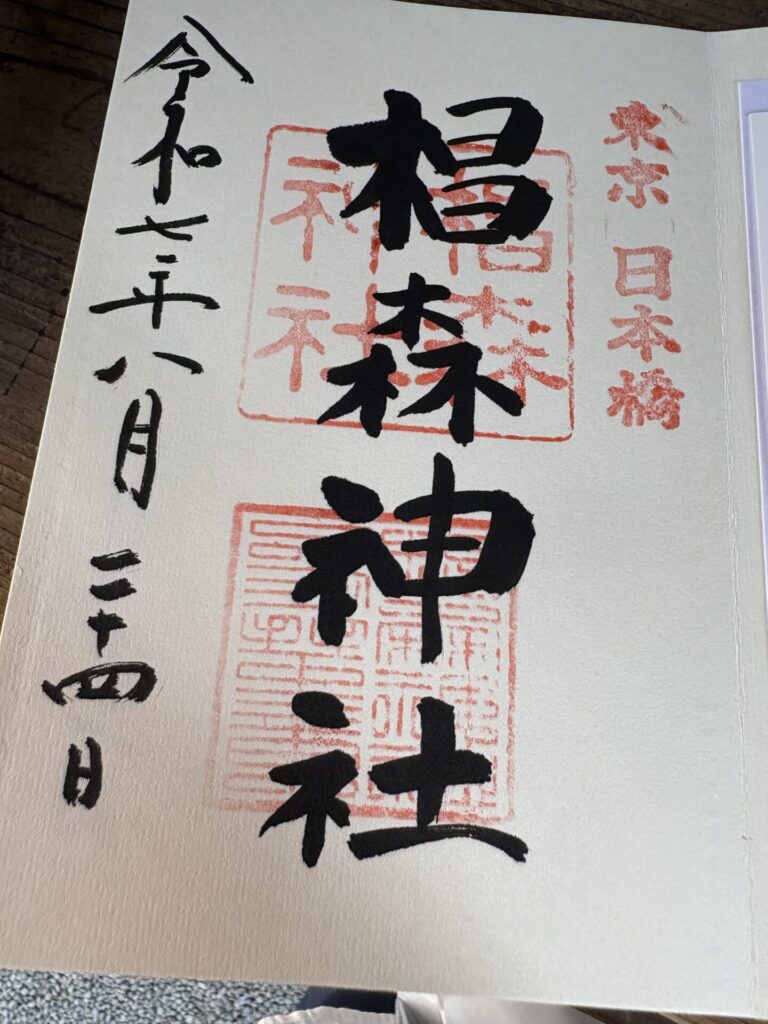 東京 日本橋
椙森神社
椙森
神社
令和七年八月二十四日